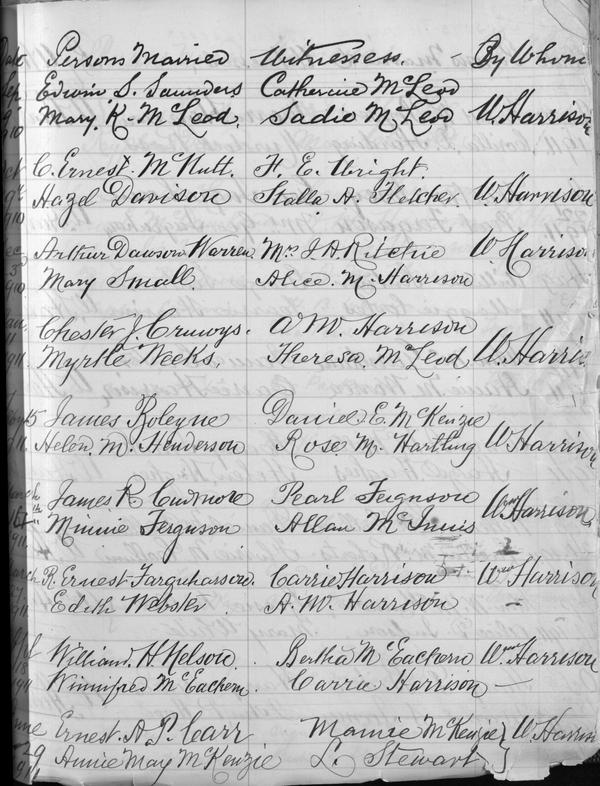 Date Persons Married Witnessess. By Whom
Sep Edwin S. Saunders Catherine McLeod
9 Mary. K. McLeod. Sadie McLeod W. Harrison
1910
Oct C. Ernest McNutt. F. E. Wright.
Hazel Davison Stalla A. Fletcher W. Harrison
1910
Dec Arthur Dawson Warren Mrs J. A. Ritchie W Harrison
3 Mary Small Alice. M. Harrison
1910
Chester J. Cruwys. A W. Harrison
Myrtle Weeks, Theresa. McLeod W. Harris
1911
15 James Roleyne Daniel E. McKenzie
Helen. M. Henderson Rose M. Hartling W Harrison
March James R Cudmore Pearl Ferguson Wm Harrison
15th Minnie Ferguson Allan McInnis
1911
March R. Ernest Farquharson. Carrie Harrison Wm Harrison
Edith Webster A. W. Harrison
1911
William. H Nelson. Bertha McEachern Wm Harrison
18 Winnifred McEachern. Carrie Harrison
1911
June Ernest. A. P. Carr Mamie McKenzie W. Harrison
29 Annie May McKenzie L. Stewart
1911